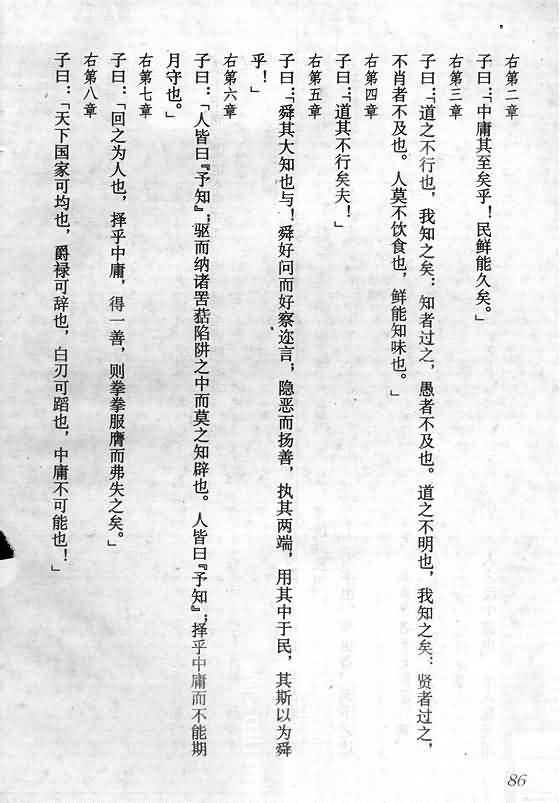 右第二章
子曰：「中庸其至矣乎！民鲜能久矣。」
右第三章
子曰：「道之不行也，我知之矣：知者过之，愚者不及也。道之不明也，我知之矣：贤者过之，
不肖者不及也。人莫不饮食也，鲜能知味也。」
右第四章
子曰：「道其不行矣夫！」
右第五章
子曰：「舜其大知也与！舜好问而好察迩言；隐恶而扬善，执其两端，用其中于民，其斯以为舜
乎！」
右第六章
子曰：「人皆曰『予知』；驱而纳诸罟擭陷阱之中而莫之知辟也。人皆曰『予知』；择乎中庸而不能期
月守也。」
右第七章
子曰：「回之为人也，择乎中庸，得一善，则拳拳服膺而弗失之矣。」
右第八章
子曰：「天下国家可均也，爵禄可辞也，白刃可蹈也，中庸不可能也！」
86